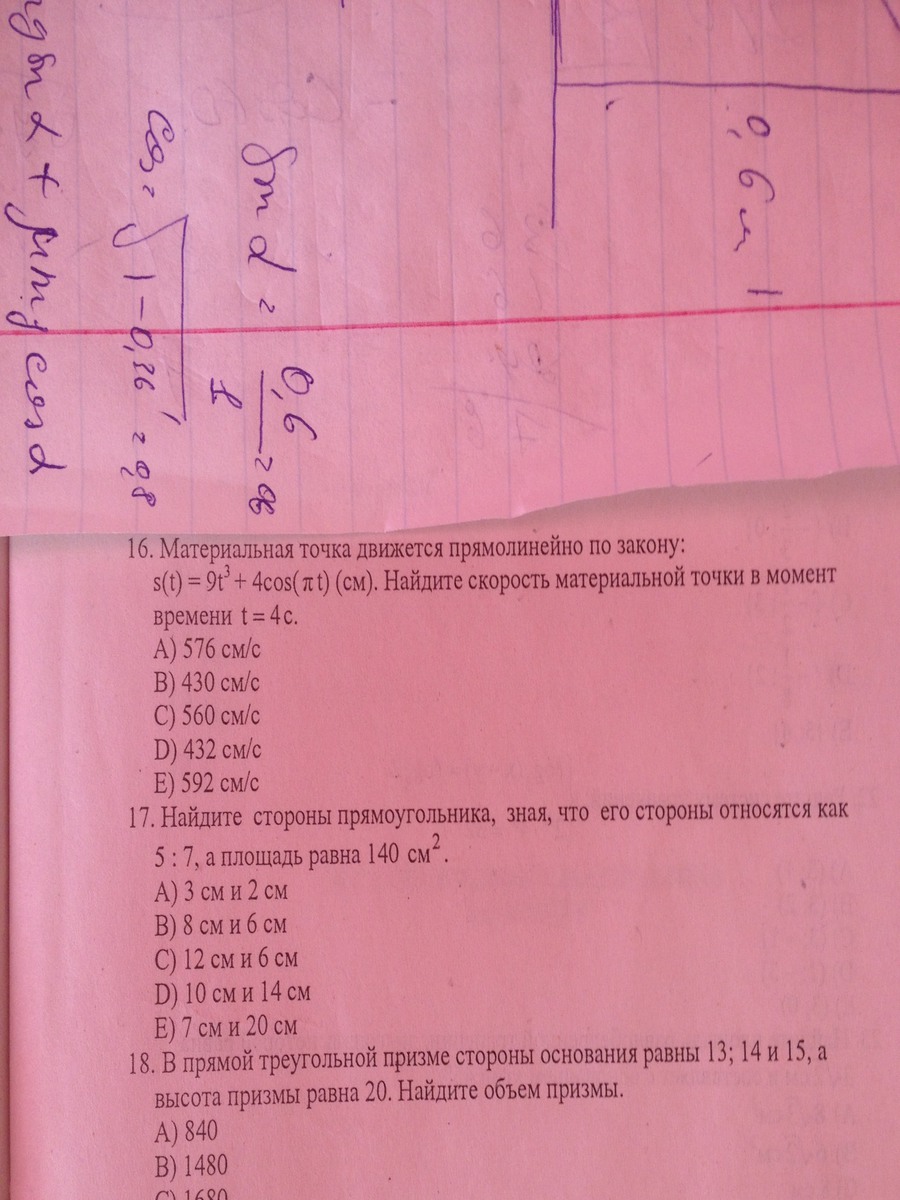 0,6 м 1
sin α = 0,6/1 = 0,6
cos = √1 - 0,36 = 0,8
sin α + μmg cos α
16. Материальная точка движется прямолинейно по закону:
s(t) = 9t³ + 4cos(πt) (см). Найдите скорость материальной точки в момент
времени t = 4 с.
A) 576 см/с
B) 430 см/с
C) 560 см/с
D) 432 см/с
E) 592 см/с
17. Найдите стороны прямоугольника, зная, что его стороны относятся как
5 : 7, а площадь равна 140 см².
A) 3 см и 2 см
B) 8 см и 6 см
C) 12 см и 6 см
D) 10 см и 14 см
E) 7 см и 20 см
18. В прямой треугольной призме стороны основания равны 13; 14 и 15, а
высота призмы равна 20. Найдите объем призмы.
A) 840
B) 1480
C) 1680